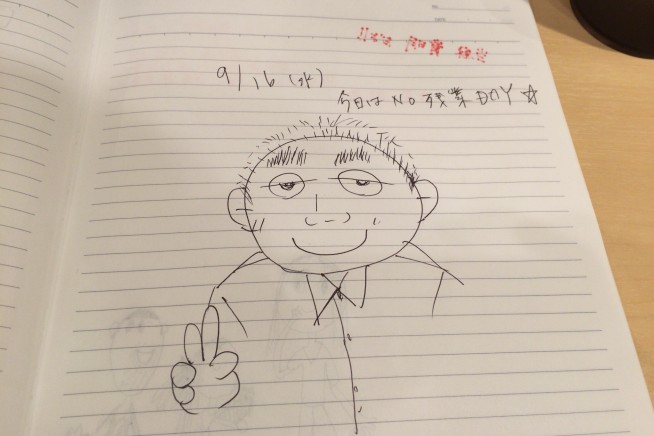 9/16(水)
今日は NO 残業 DAY ☆